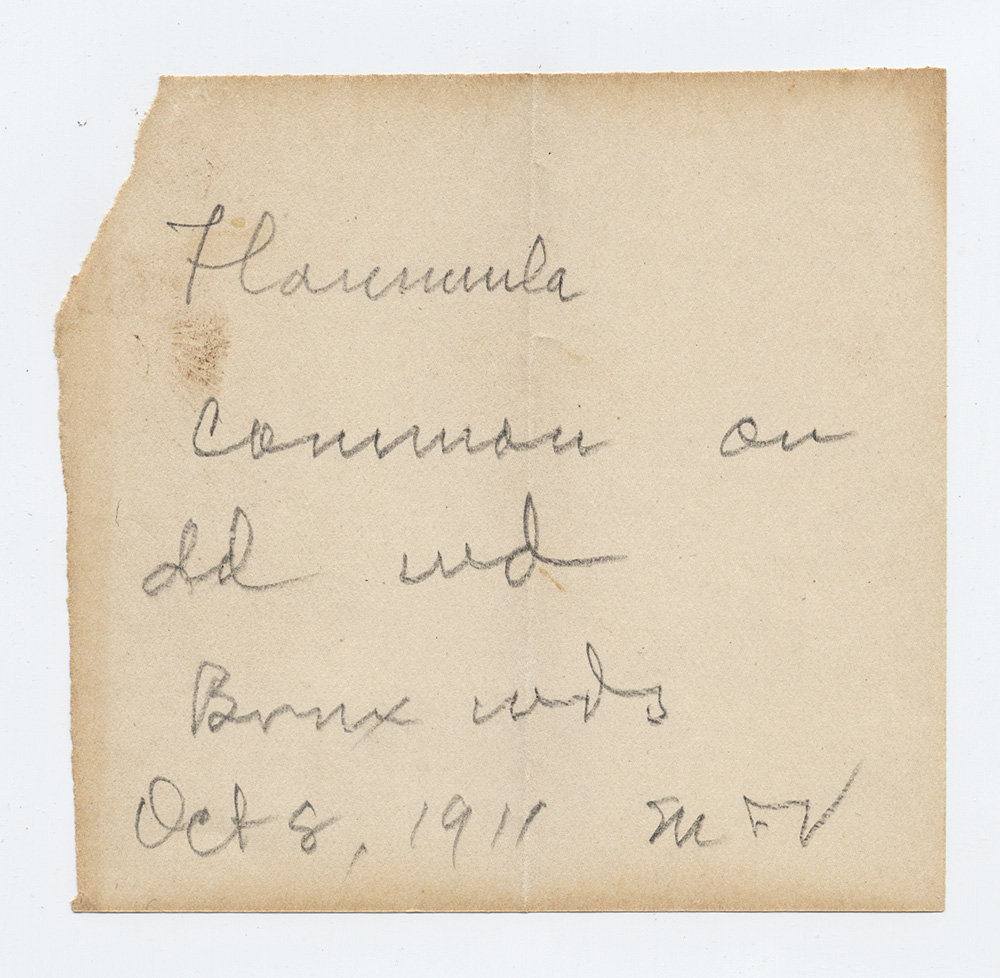 Flammula
common on
dd wd
Bronx wds
Oct 8, 1911 M F V